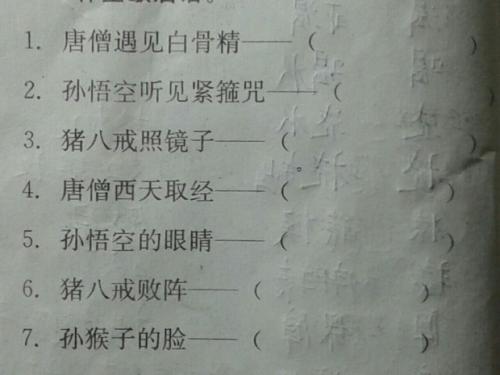 1. 唐僧遇见白骨精——（ ）
2. 孙悟空听见紧箍咒——（ ）
3. 猪八戒照镜子——（ ）
4. 唐僧西天取经——（ ）
5. 孙悟空的眼睛——（ ）
6. 猪八戒败阵——（ ）
7. 孙猴子的脸——（ ）